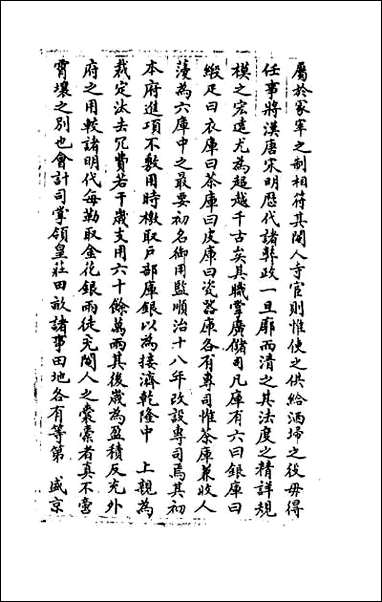 屬於冢宰之制相符其閹人寺官則惟使之供給洒埽之後毋得
任事將漢唐宋明歷代諸弊政一旦廓而清之其法度之精詳規
模之宏遠尤為超越千古矣其職掌廣儲司凡庫有六曰銀庫曰
緞疋曰衣庫曰茶庫曰皮庫曰瓷器庫各有專司惟茶庫兼收人
葠為六庫中之最要初名御用監順治十八年改設專司焉其初
本府進項不敷用時檄取戶部庫銀以為接濟乾隆中　上親為
裁定汰去冗費若干歲支用六十餘萬兩其後歲為盈積反充外
府之用較諸明代每勒取金花銀兩徒充閹人之囊橐者真不啻
霄壤之別也會計司掌領皇莊田畝諸事田地各有等第　盛京